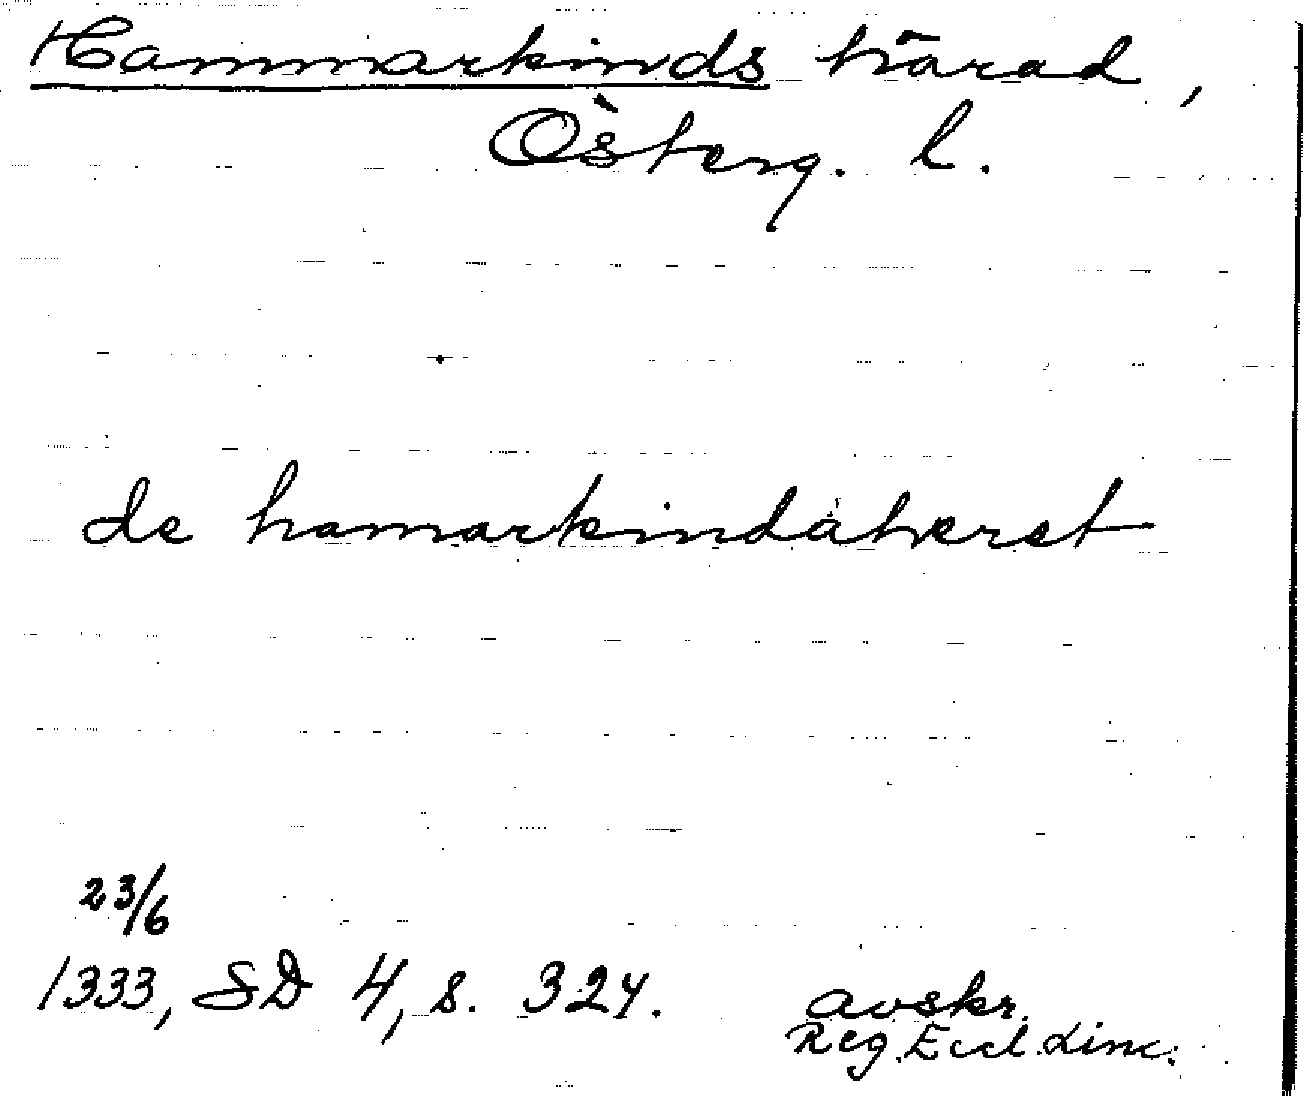 Hammarkinds härad,
Österg. l.
de hamarkindähæret
23/6
1333, SD 4, s. 324. avskr.
Reg. Eccl. Linc.